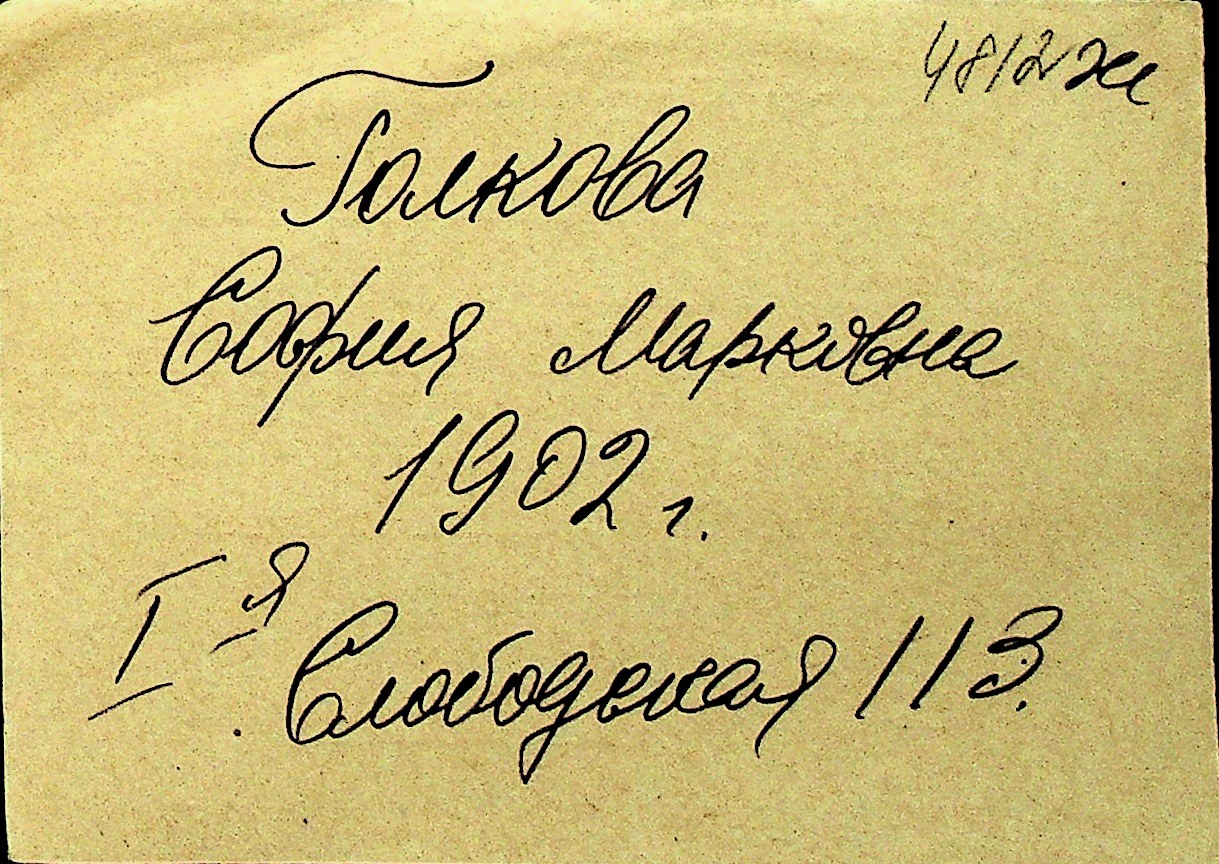 48/2 ж
Голкова
София Марковна
1902 г.
I-я Слободская 113.